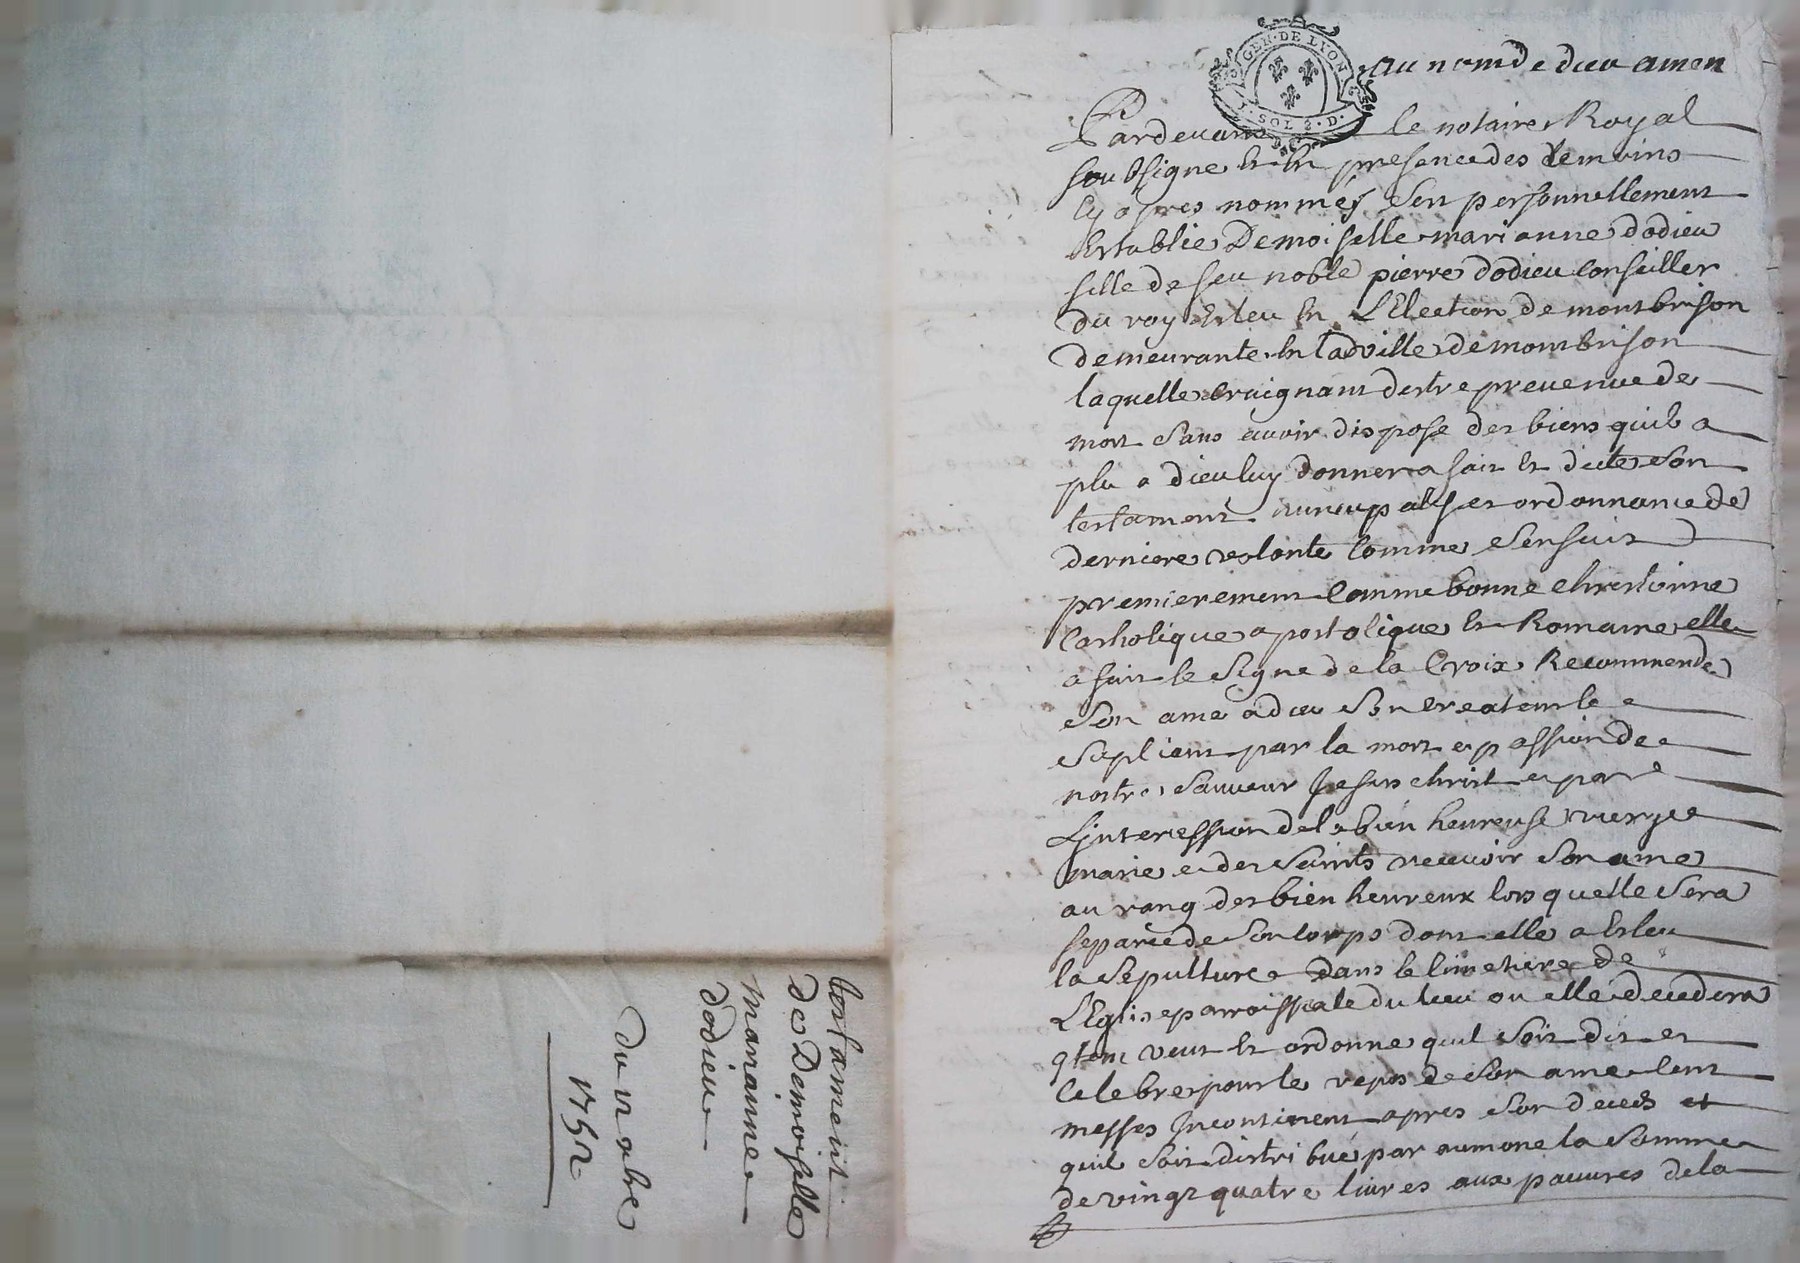 testament
de Demoiselle
marianne
dodieu
du 12 abre
1752
GEN · DE LYON
SOL 2 · D.
au nom de dieu amen
Pardevant le notaire Royal
soubsigne et en presence des temoins
cy apres nommés sent personnellement
Establie Demoiselle marianne dodieu
fille de feu noble pierre dodieu conseiller
du roy Esleu en L'Election de montbrison
demeurante en la ville de montbrison
laquelle craignant destre prevenue de
mort sans avoir dispose des biens quil a
plu a dieu luy donner a fait et dicte son
testament nuncupatif et ordonnance de
derniere volonte comme sensuit
premierement comme bonne chrestienne
Catholique apostolique et Romaine elle
a fait le signe de la Croix Recommende
son ame a dieu son createur le
supliant par la mort et passion de
nostre sauveur Jesus christ et par
Lintercession de la bien heureuse vierge
marie et des saints recevoir son ame
au rang des bien heureux lors quelle sera
separée de son corps dont elle a Esleu
la sepulture dans le cimetiere de
L'Eglise parroissiale du lieu ou elle decedera
Item veut et ordonne quil soit dit et
celebre pour le repos de son ame cent
messes Incontinent apres son deceds et
quil soit distribué par aumone la somme
de vingt quatre livres aux pauvres de la